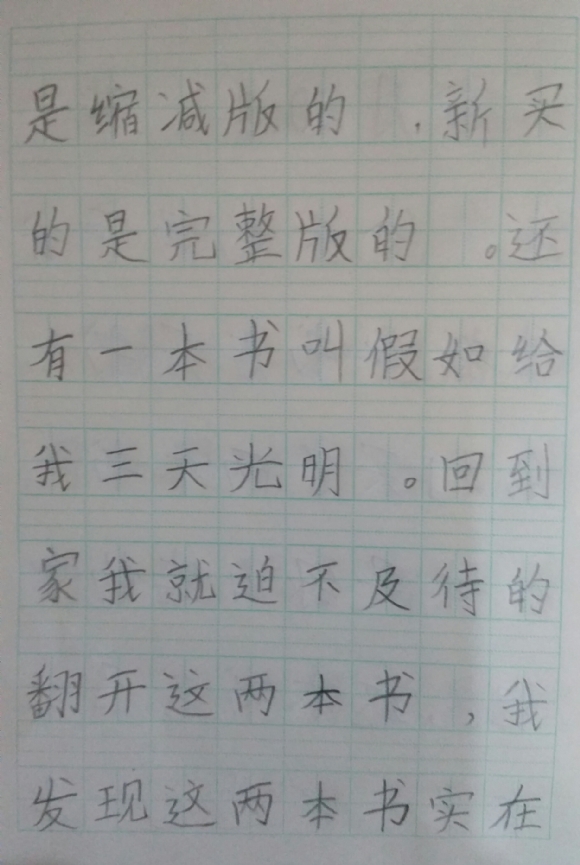 是缩减版的，新买
的是完整版的。还
有一本书叫假如给
我三天光明。回到
家我就迫不及待的
翻开这两本书，我
发现这两本书实在